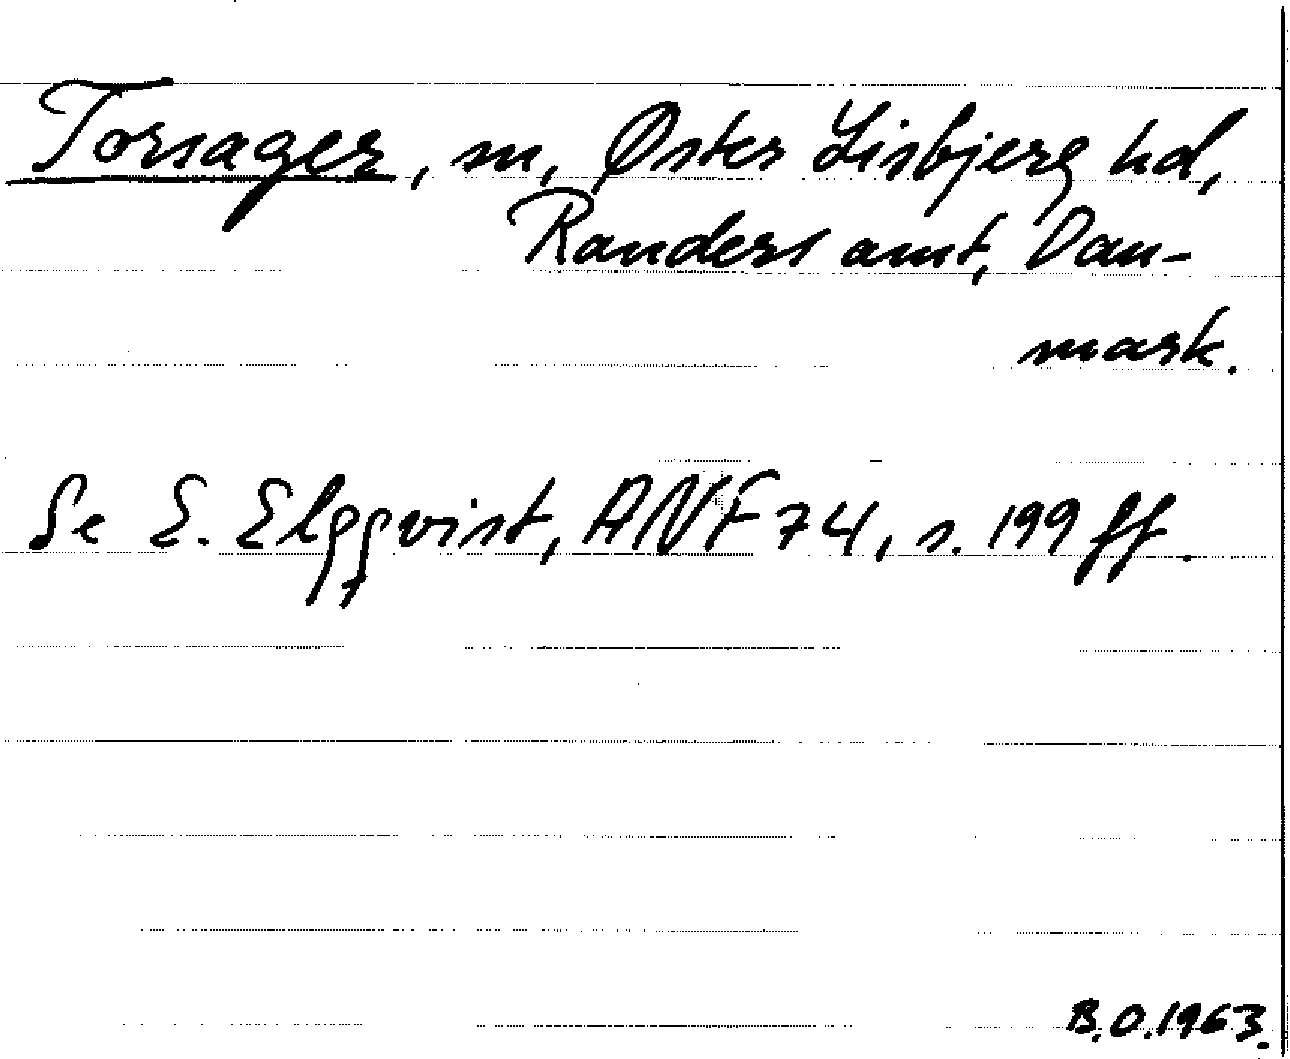 Torsager, sn, Øster Lisbjerg hd,
Randers amt, Dan-
mark.
Se E. Elgqvist, ANF 74, s. 199 ff.
B.O. 1963.